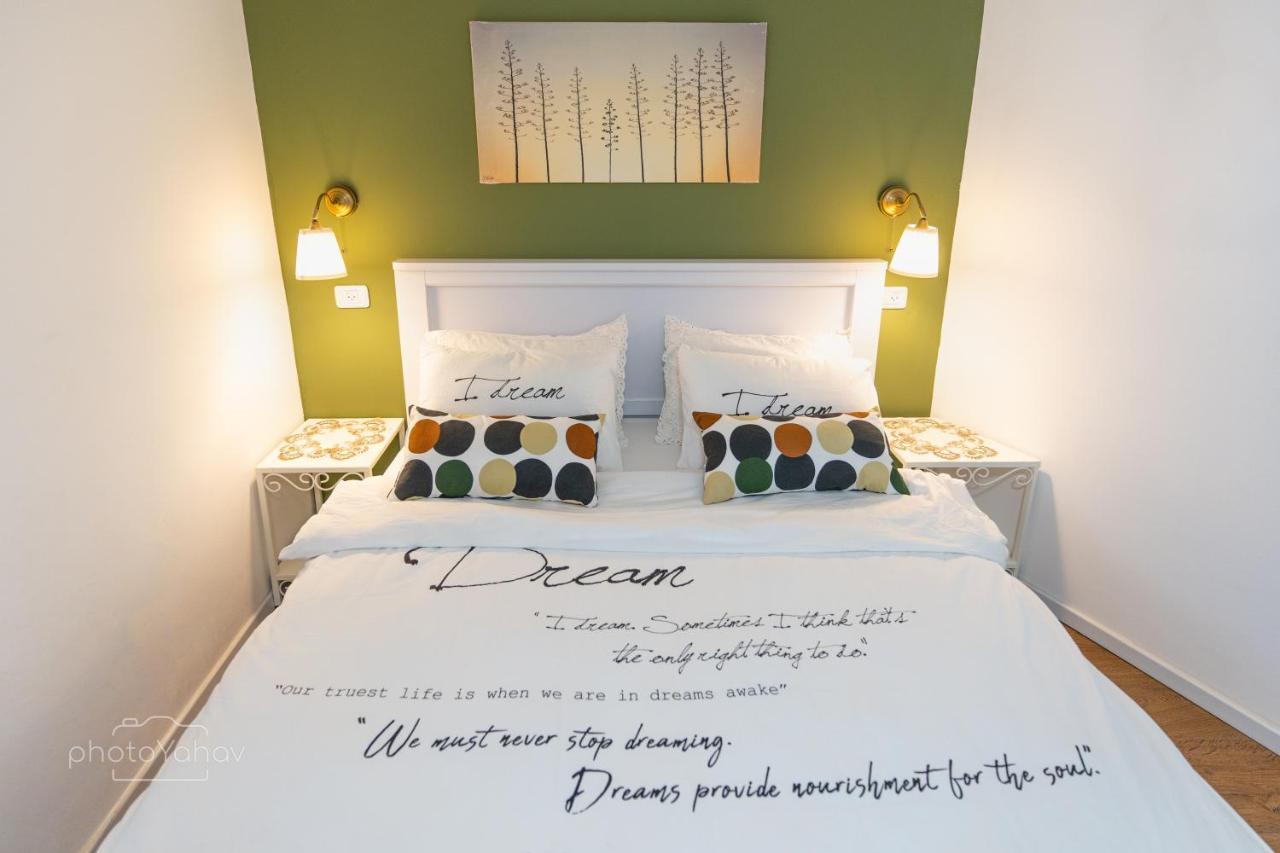 I dream
I dream
Dream
"I dream. Sometimes I think that's
the only right thing to do."
"Our truest life is when we are in dreams awake"
"We must never stop dreaming.
Dreams provide nourishment for the soul."
photoYahav